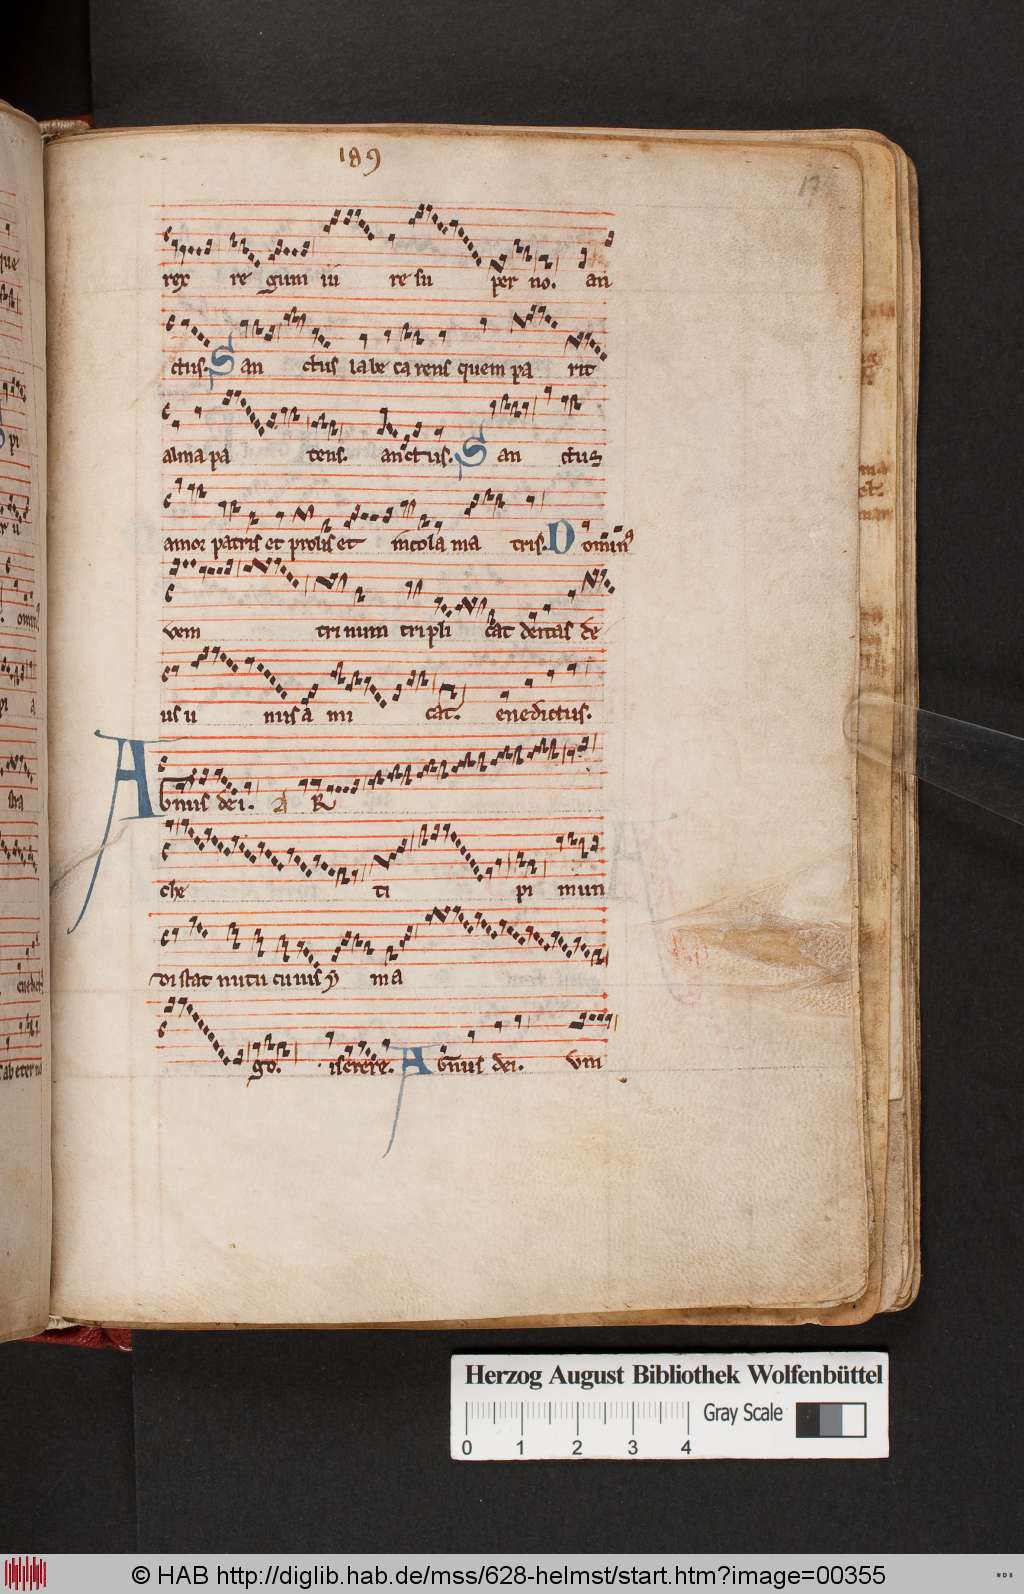 189
17
rex re gum in re su per no. an
ctus. San ctus labe ca rens quem pa rit
alma pa rens. anctus. San ctus
amor patris et prolis et incola ma tris. Domin⁹
vem tri num tri pli cat deitas de
us u nus a mi cat. enedictus.
Agnus dei. A R
che ti pi mun
di stat nutu cuius y ma
go. iserere. Agnus dei. vin
Herzog August Bibliothek Wolfenbüttel
Gray Scale
0 1 2 3 4
© HAB http://diglib.hab.de/mss/628-helmst/start.htm?image=00355